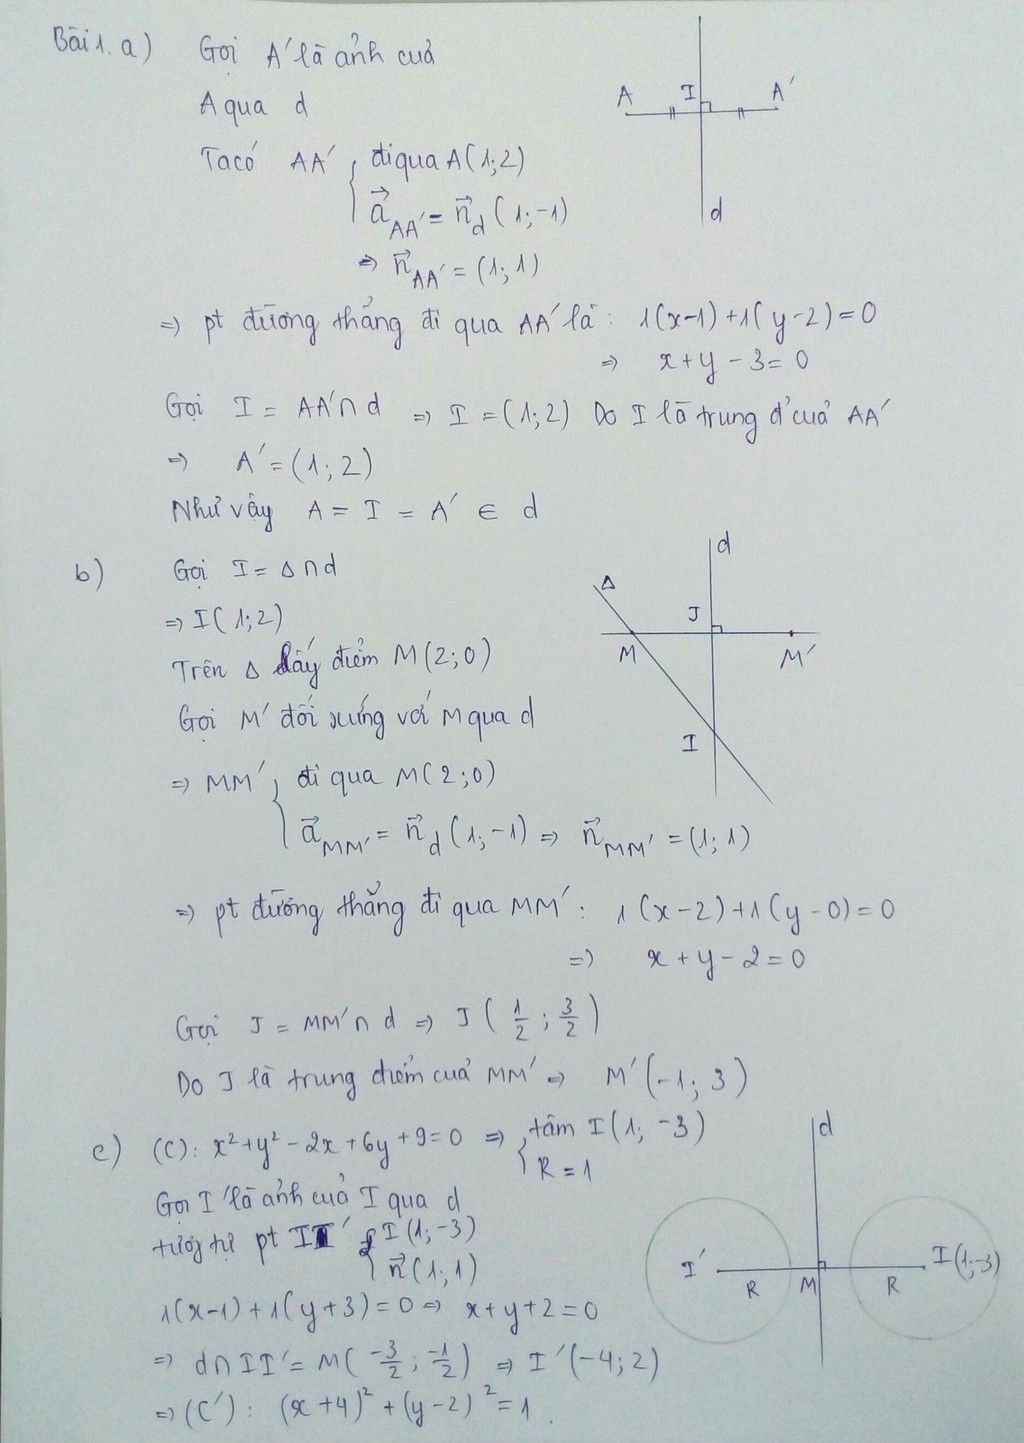 Bài 1. a) Gọi A' là ảnh của
A qua d
Ta có AA' { đi qua A(1;2)
a⃗_AA' = n⃗_d (1;-1)
=> n⃗_AA' = (1;1)
A I A'
d
=> pt đường thẳng đi qua AA' là: 1(x-1)+1(y-2)=0
=> x+y-3=0
Gọi I = AA'∩d => I = (1;2) Do I là trung đ' của AA'
=> A' = (1;2)
Như vậy A = I = A' ∈ d
b) Gọi I = Δ∩d
=> I(1;2)
Trên Δ lấy điểm M(2;0)
Gọi M' đối xứng với M qua d
=> MM' { đi qua M(2;0)
a⃗_MM' = n⃗_d (1;-1) => n⃗_MM' = (1;1)
d
Δ
J
M M'
I
=> pt đường thẳng đi qua MM': 1(x-2)+1(y-0)=0
=> x+y-2=0
Gọi J = MM'∩d => J(1/2; 3/2)
Do J là trung điểm của MM' => M'(-1;3)
c) (C): x²+y²-2x+6y+9=0 => { tâm I(1;-3)
R=1
Gọi I' là ảnh của I qua d
tương tự pt II' { I(1;-3)
n⃗(1;1)
1(x-1)+1(y+3)=0 => x+y+2=0
=> d∩II' = M(-3/2; -1/2) => I'(-4;2)
=> (C'): (x+4)²+(y-2)²=1.
d
I' I(1;-3)
R M R